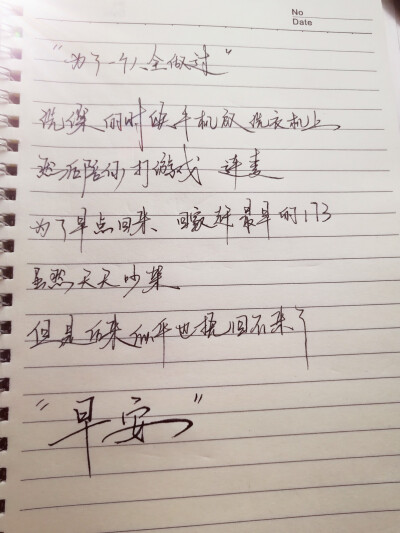 No
Date
"为了一个人全做过"
洗澡的时候手机放洗衣机上
然后陪你打游戏 连麦
为了早点回来 回家赶最早的173
虽然天天吵架
但是后来似乎也换回不来了
"早安"